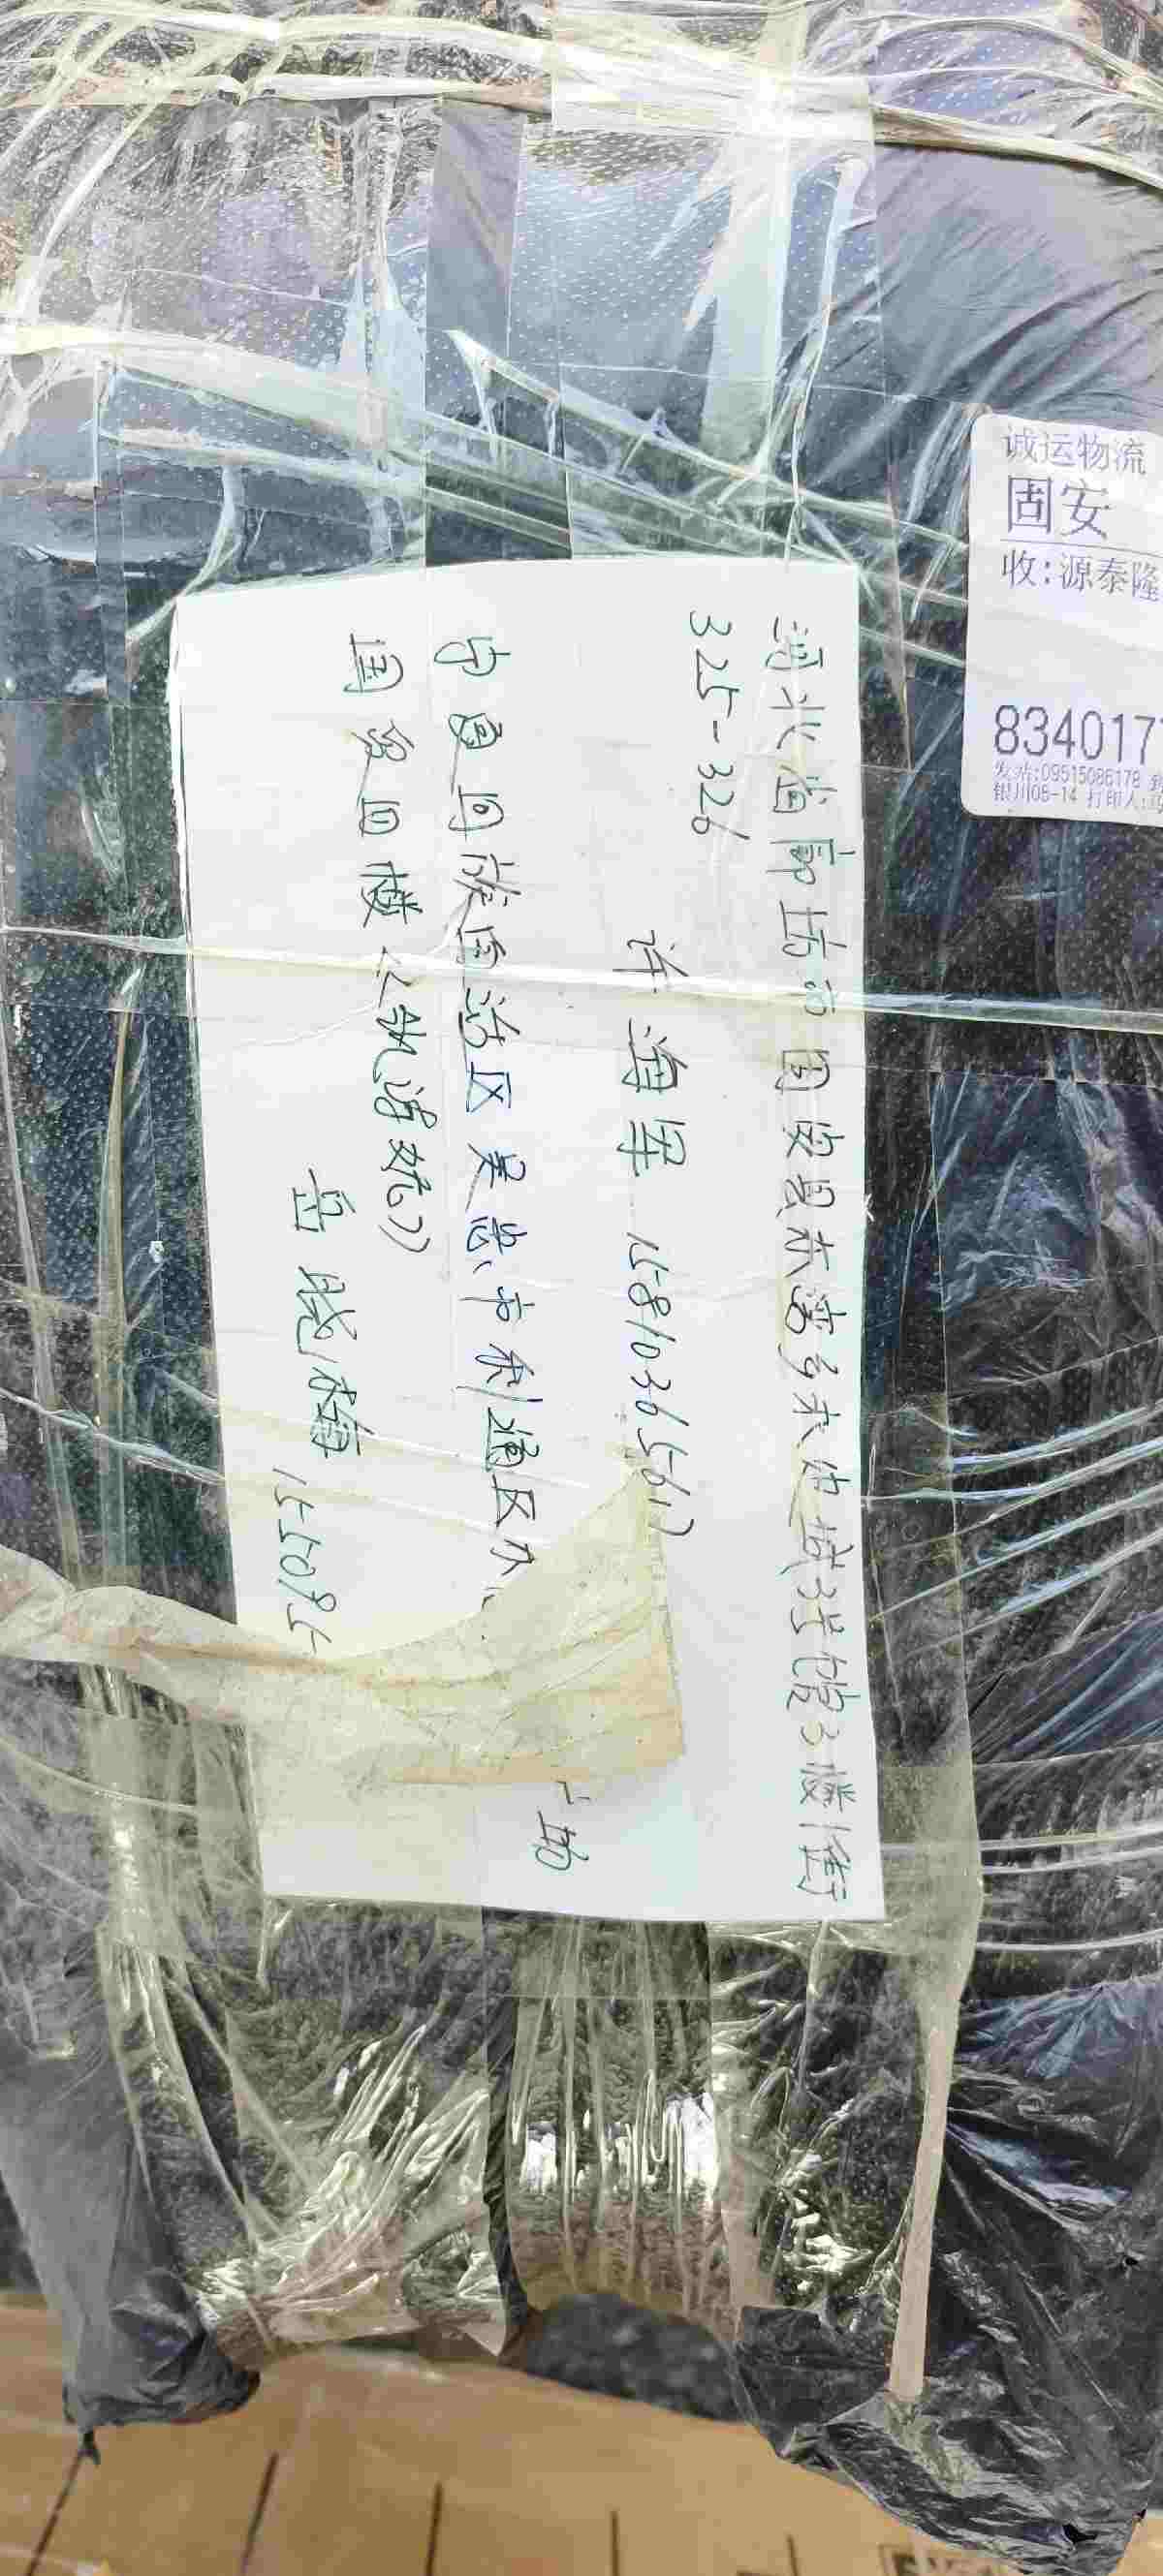 诚运物流
固安
收:源泰隆
834017
发站:09515086178
银川08-14 打印人:马
河北省廊坊市固安县东湾乡永边城3号馆3楼1街
325-326
许海军 15810365617
宁夏回族自治区吴忠市利通区
国贸四楼
岳晓梅 155095